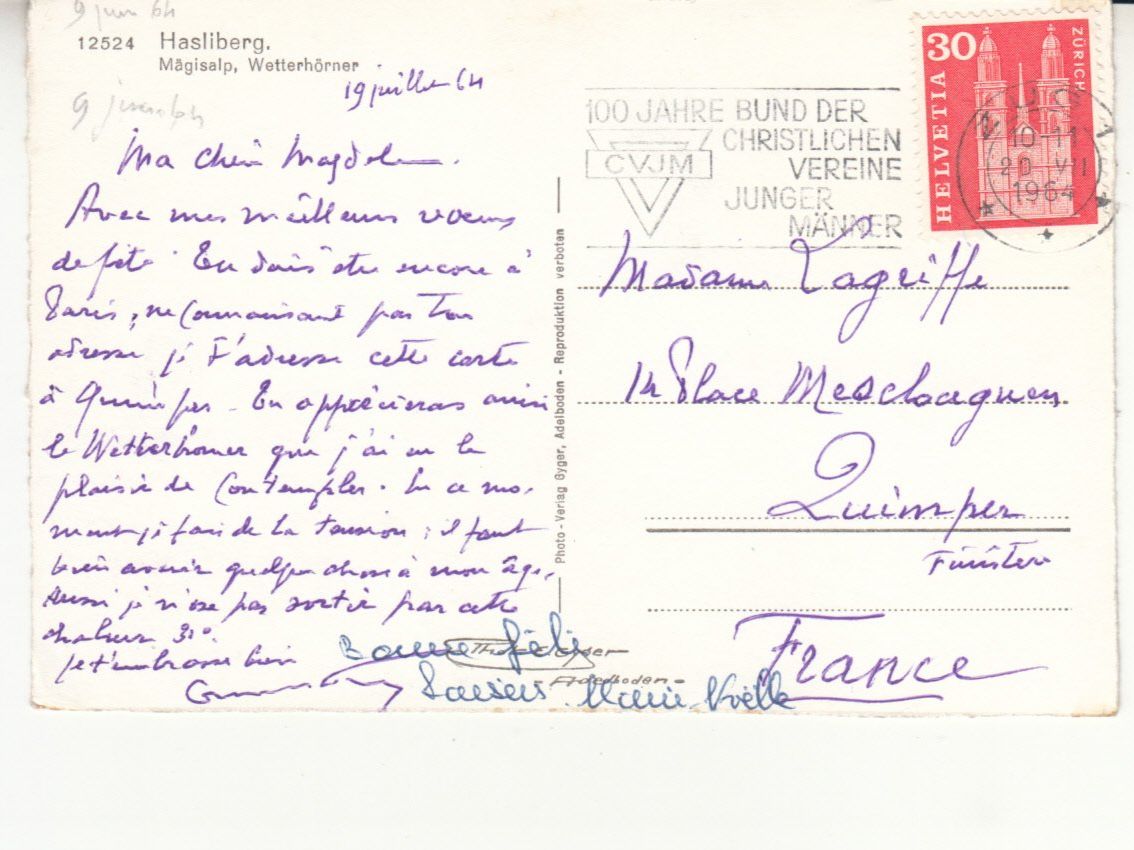 9 juin 64
12524 Hasliberg.
Mägisalp, Wetterhörner
19 juillet 64
9 juin 64
Ma chère Magdeleine.
Avec mes meilleurs voeux
de fête. Tu dois être encore à
Paris, ne connaissant pas ton
adresse je t'adresse cette carte
à Quimper. Tu apprécieras ainsi
le Wetterhörner que j'ai eu le
plaisir de contempler. En ce mo-
ment je fais de la tension ; il faut
bien avoir quelque chose à mon âge,
aussi je n'ose pas sortir par cette
chaleur 30°.
Je t'embrasse bien
Bonne fête
Baisers Marie-Noëlle
Gyger
Adelboden
Photo-Verlag Gyger, Adelboden - Reproduktion verboten
100 JAHRE BUND DER
CHRISTLICHEN
VEREINE
JUNGER
MÄNNER
CVJM
HELVETIA 30 ZÜRICH
ZUG 1
10-11
20 VII
1964
Madame Lagriffe
14 Place Mescloaguen
Quimper
Finistère
France